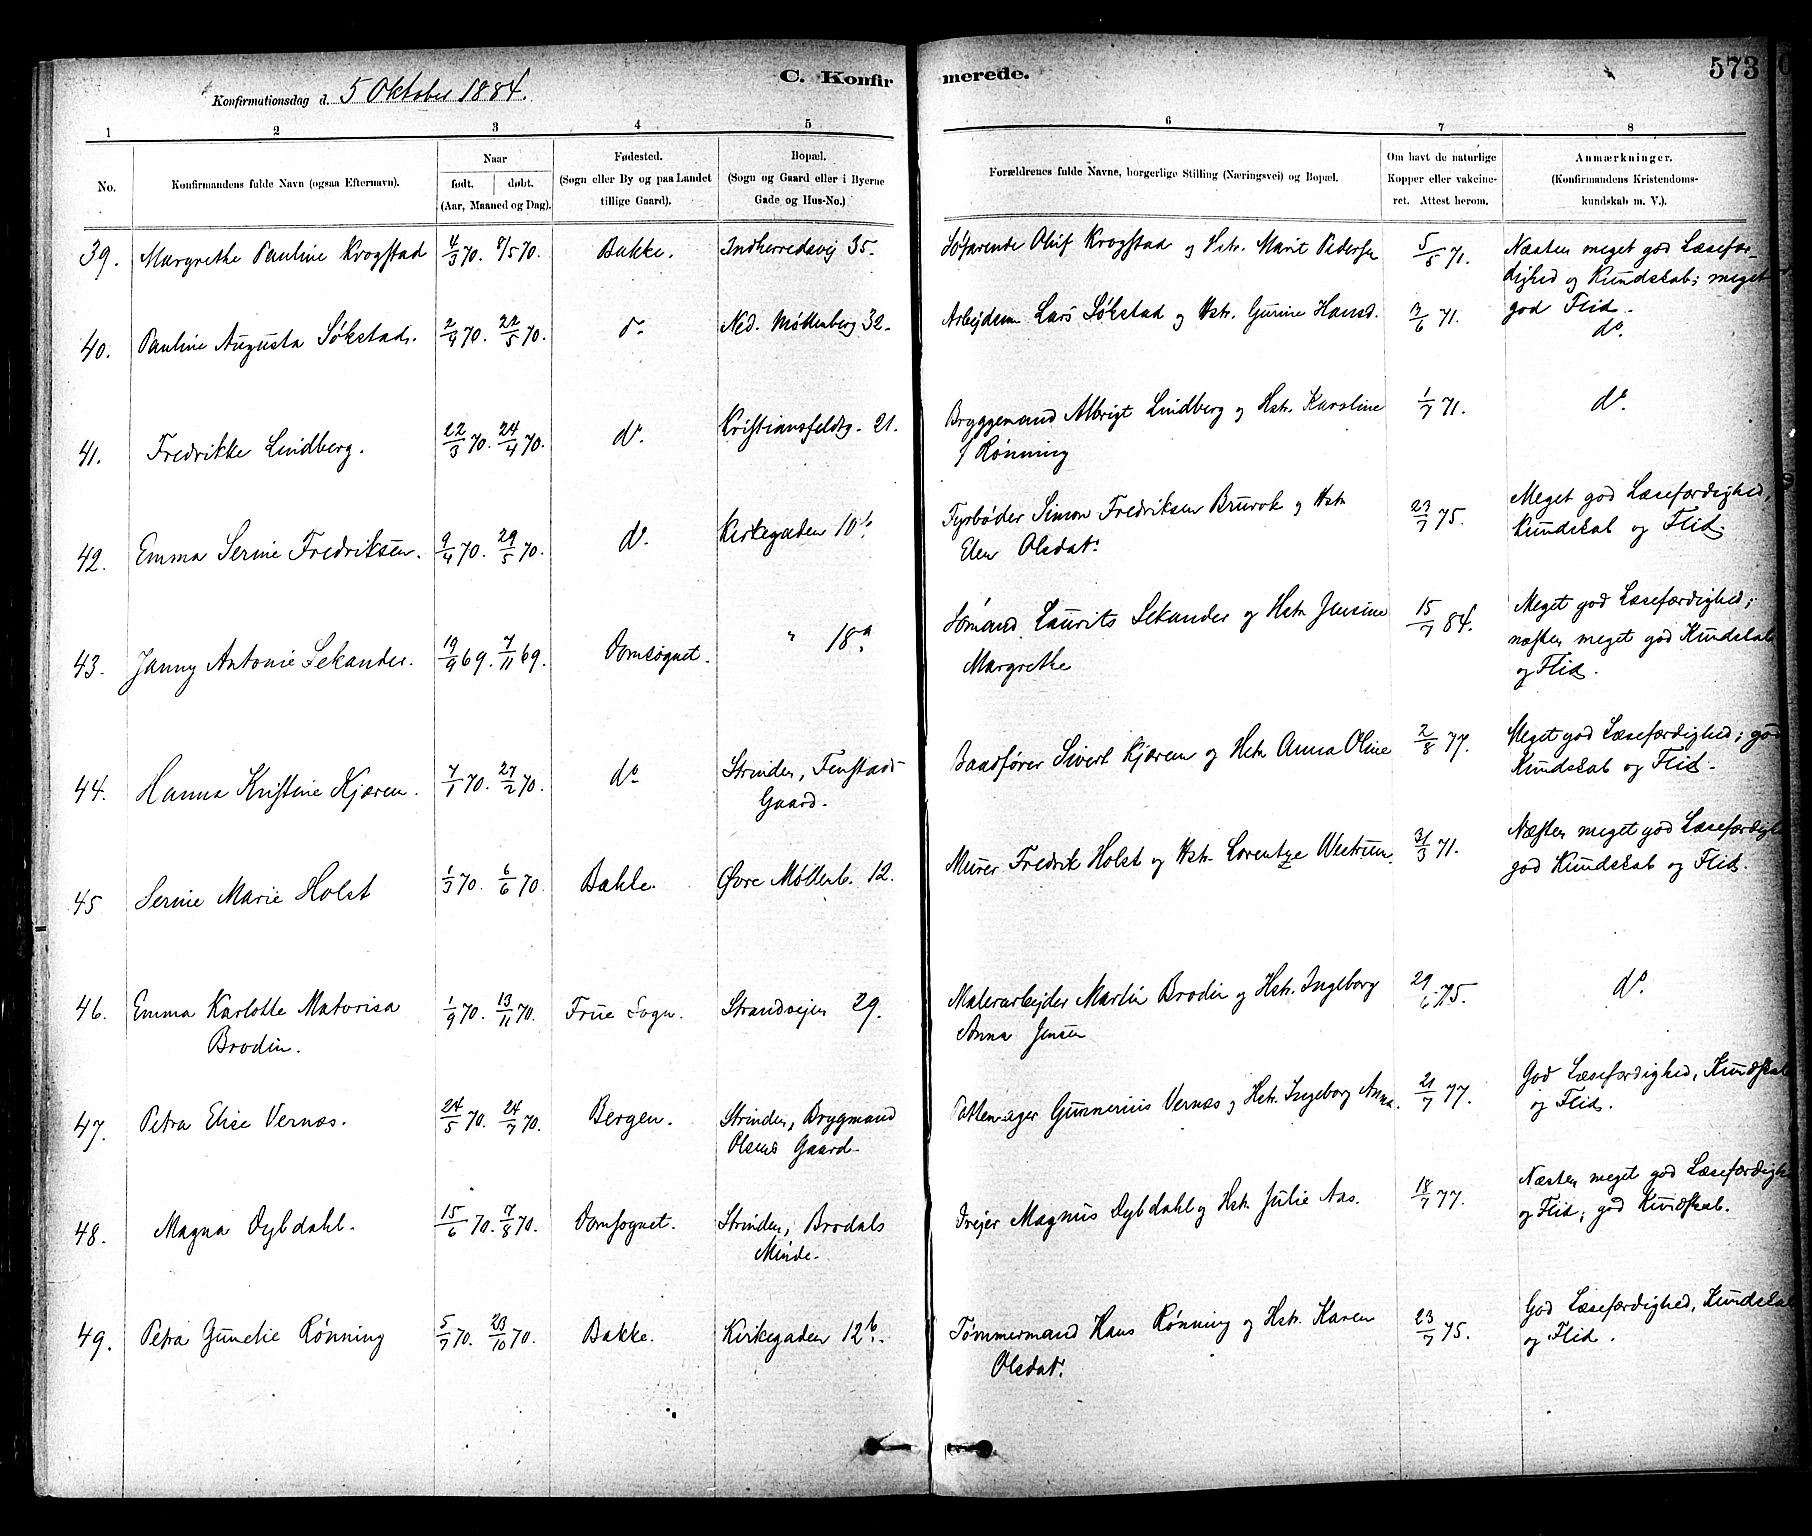 C. Konfir merede. 573
Konfirmationsdag d. 5 Oktober 1884.
1 2 3 4 5 6 7 8
No.
Konfirmandens fulde Navn (ogsaa Efternavn).
Naar
født. døbt.
(Aar, Maaned og Dag).
Fødested.
(Sogn eller By og paa Landet
tillige Gaard).
Bopæl.
(Sogn og Gaard eller i Byerne
Gade og Hus-No.)
Forældrenes fulde Navne, borgerlige Stilling (Næringsvei) og Bopæl.
Om havt de naturlige
Kopper eller vakcine-
ret. Attest herom.
Anmærkninger.
(Konfirmandens Kristendoms-
kundskab m. V.).
39. Margrethe Pauline Krogstad 4/3 70. 8/5 70. Bakke. Indherredsvej 35. Søfarende Oluf Krogstad og Hstr. Marit Pedersen 5/5 71. Næsten meget god Læsefær-
dighed og Kundskab; meget
god Flid.
40. Pauline Augusta Søkstad. 2/4 70. 22/5 70. do. Ned. Møllenberg 32. Arbejdsm. Lars Søkstad og Hstr. Gurine Hansd. 3/6 71. do.
41. Fredrikke Lindberg. 22/3 70. 24/4 70. do. Kristiansfeldtg. 21. Bryggemand Albrigt Lindberg og Hstr. Karoline
f Rønning
1/7 71. do.
42. Emma Serine Fredriksen. 9/4 70. 29/5 70. do. Kirkegaden 10b. Fyrbøder Simon Fredriksen Bruvok og Hstr.
Elen Olsdatr
23/7 75. Meget god Læsefærdighed,
Kundskab og Flid.
43. Janny Antonie Sekander. 19/9 69. 7/11 69. Domsognet. " 18a Sømand Laurits Sekander og Hstr. Jensine
Margrethe
15/7 84. Meget god Læsefærdighed;
næsten meget god Kundskab
og Flid.
44. Hanna Kristine Kjæren. 7/1 70. 27/2 70. do Strinden, Fenstads
Gaard.
Baadfører Sivert Kjæren og Hstr. Anna Oline 2/8 77. Meget god Læsefærdighed; god
Kundskab og Flid.
45 Serine Marie Holst 1/3 70. 6/6 70. Bakke. Øvre Møllenb. 12. Murer Fredrik Holst og Hstr. Lorentze Westrum. 31/3 71. Næsten meget god Læsefærdigh
god Kundskab og Flid.
46. Emma Karlotte Matorisa
Brodin.
1/9 70. 13/11 70. Frue Sogn. Strandvejen 29. Malerarbejder Martin Brodin og Hstr. Ingeborg
Anna Jensen
29/6 75. do.
47. Petra Elise Vernæs. 24/5 70. 24/7 70. Bergen. Strinden, Brygmand
Olsens Gaard.
Gunnerius Vernæs og Hstr. Ingeborg Anna. 21/7 77. God Læsefærdighed, Kundskab
og Flid.
48. Magna Dybdahl. 15/6 70. 7/8 70. Domsognet. Strinden, Brodals
Minde.
Drejer Magnus Dybdahl og Hstr. Julie Aas. 18/7 77. Næsten meget god Læsefærdigh
og Flid; god Kundskab.
49. Petra Gunelie Rønning 5/7 70. 23/10 70. Bakke. Kirkegaden 12b. Tømmermand Hans Rønning og Hstr. Karen
Olsdatr
23/7 75. God Læsefærdighed, Kundskab
og Flid.